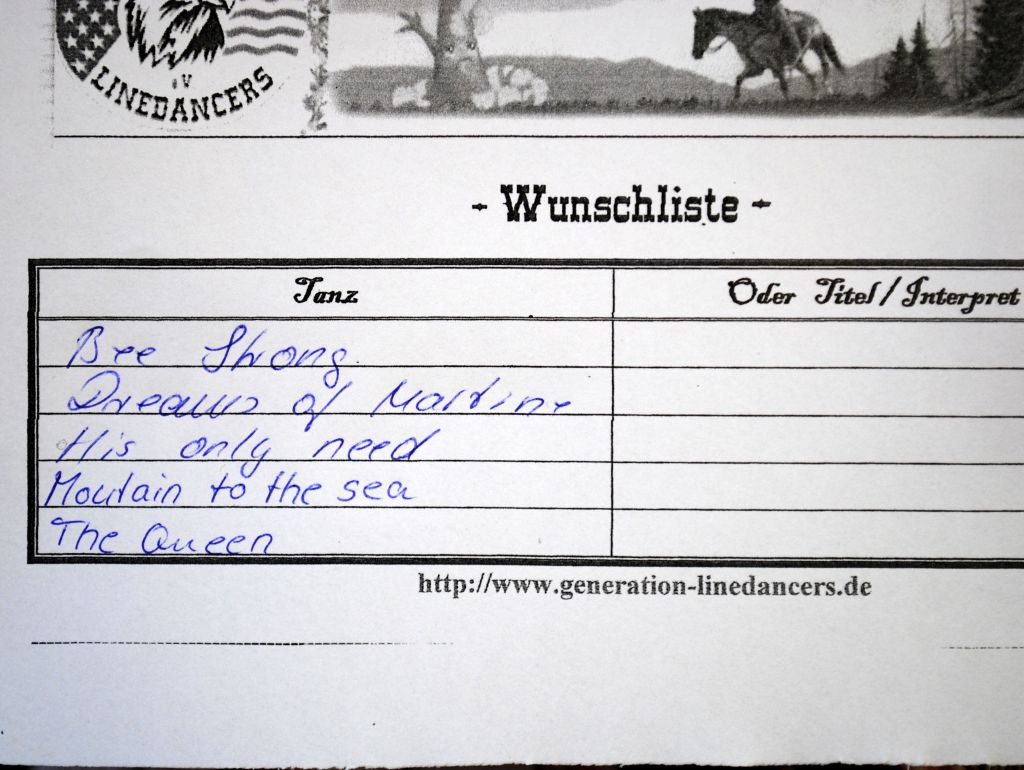 e V
LINEDANCERS
- Wunschliste -
Tanz
Oder Titel/Interpret
Bee Strong
Dreams of Martine
His only need
Moutain to the sea
The Queen
http://www.generation-linedancers.de